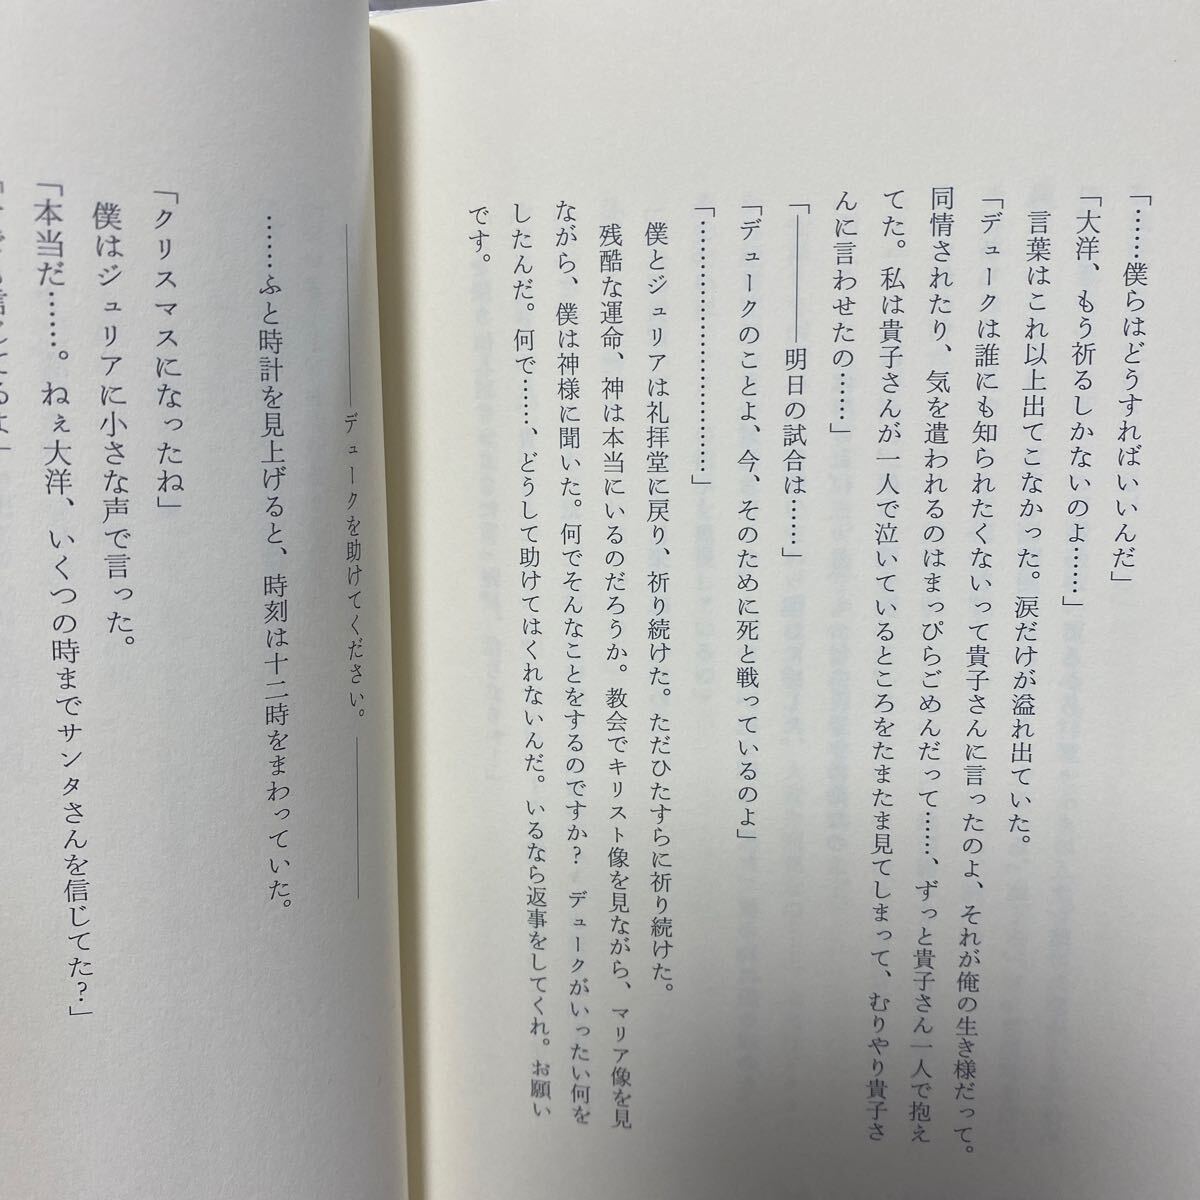 「……僕らはどうすればいいんだ」
「大洋、もう祈るしかないのよ……」
言葉はこれ以上出てこなかった。涙だけが溢れ出ていた。
「デュークは誰にも知られたくないって貴子さんに言ったのよ、それが俺の生き様だって。
同情されたり、気を遣われるのはまっぴらごめんだって……、ずっと貴子さん一人で抱え
てた。私は貴子さんが一人で泣いているところをたまたま見てしまって、むりやり貴子さ
んに言わせたの……」
「――――明日の試合は……」
「デュークのことよ、今、そのために死と戦っているのよ」
「…………………………」
僕とジュリアは礼拝堂に戻り、祈り続けた。ただひたすらに祈り続けた。
残酷な運命、神は本当にいるのだろうか。教会でキリスト像を見ながら、マリア像を見
ながら、僕は神様に聞いた。何でそんなことをするのですか？ デュークがいったい何を
したんだ。何で……、どうして助けてはくれないんだ。いるなら返事をしてくれ。お願い
です。
――――――デュークを助けてください。――――――
……ふと時計を見上げると、時刻は十二時をまわっていた。
「クリスマスになったね」
僕はジュリアに小さな声で言った。
「本当だ……。ねぇ大洋、いくつの時までサンタさんを信じてた？」